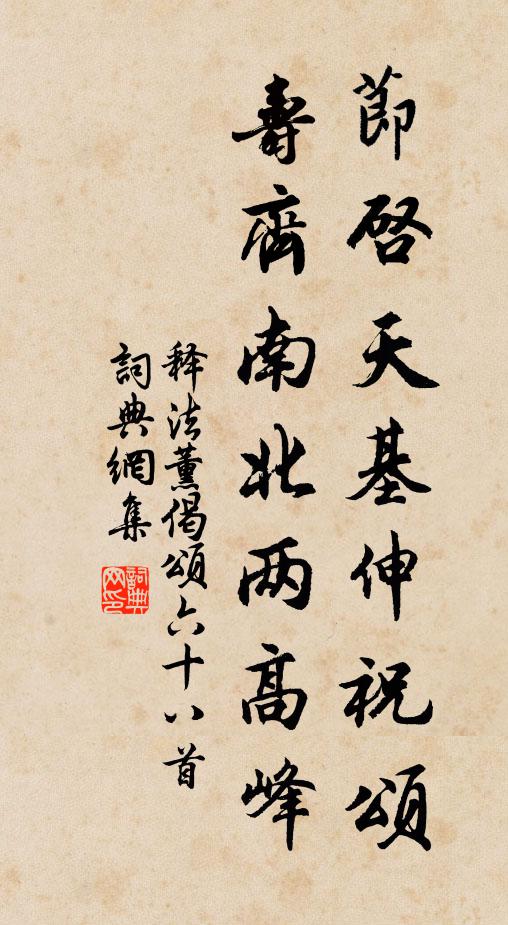 節啓天基伸祝頌
壽齊南北两高峰
释法薰偈頌六十八首
詞典網集
詞典网印